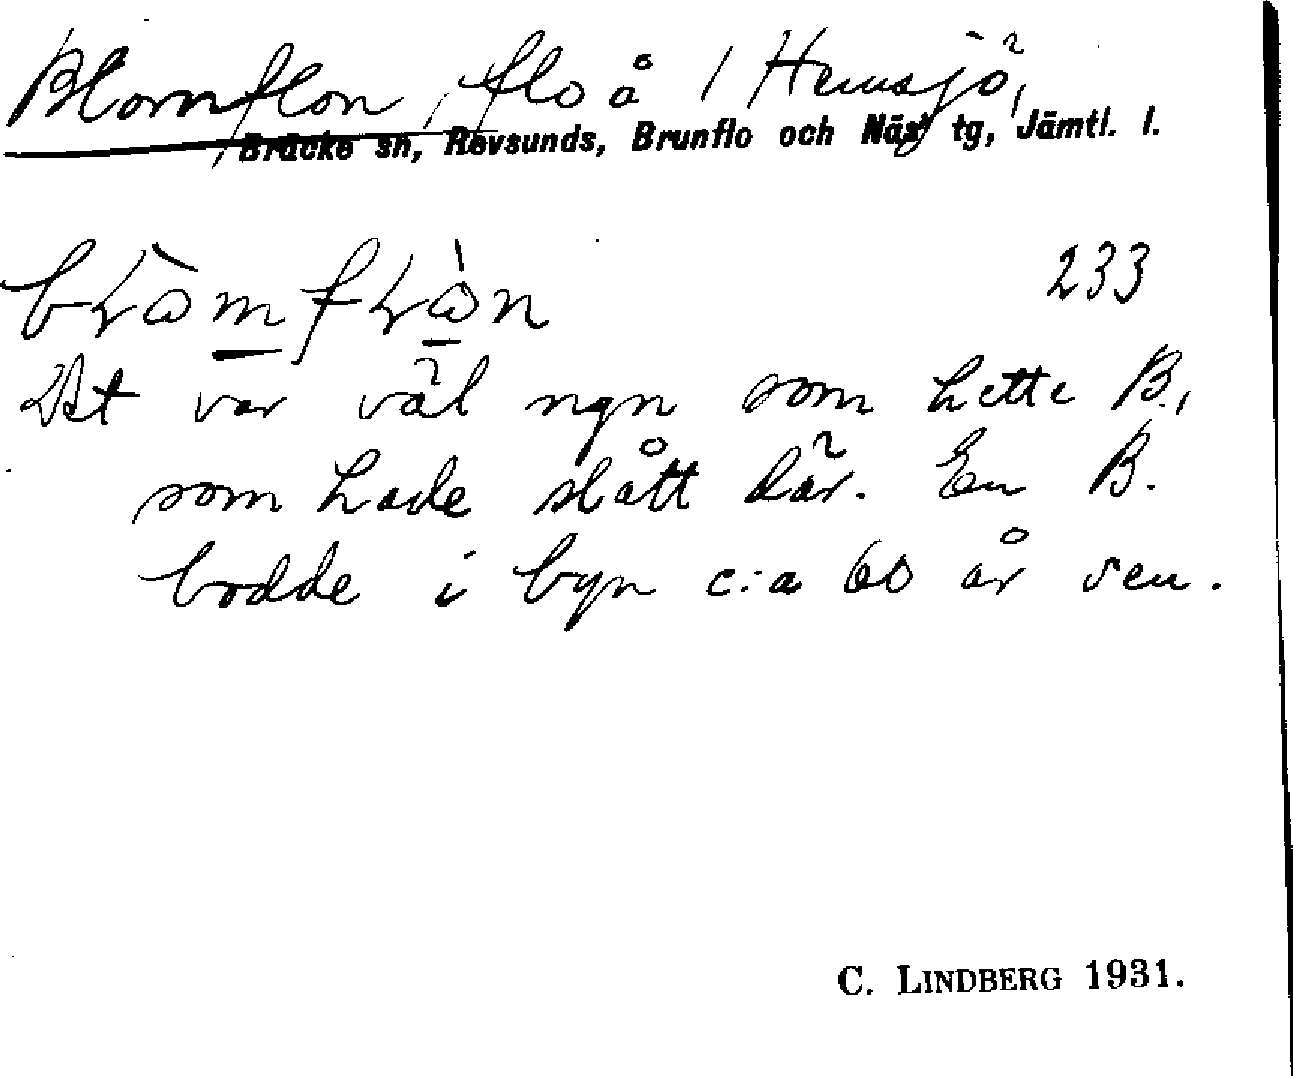 Blomflon, flo å / Hemsjö,
Bräcke sn, Revsunds, Brunflo och Näs tg, Jämtl. l.
233
Det var väl ngn som hette B.,
som hade slått där. En B.
bodde i byn c:a 60 år sen.
C. LINDBERG 1931.